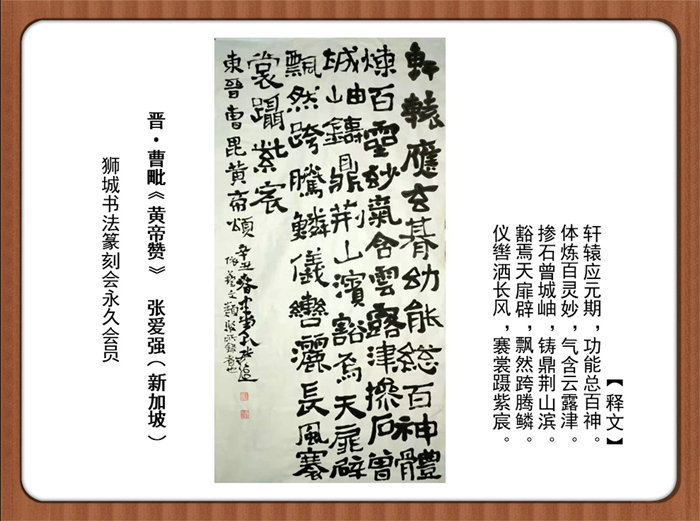 【释文】
轩辕应元期，功能总百神。
体炼百灵妙，气含云露津。
掺石曾城岫，铸鼎荆山滨。
豁焉天扉辟，飘然跨腾鳞。
仪辔洒长风，褰裳蹑紫宸。
軒轅應玄朞幼能總百神體
煉百靈妙氣含雲露津摻石曾
城岫鑄鼎荆山濱豁焉天扉辟
飄然跨騰鱗儀轡灑長風褰
裳躡紫宸
東晉曹毘黄帝頌 辛丑春
藝文類聚所録者也
晋·曹毗《黄帝赞》 张爱强（新加坡）
狮城书法篆刻会永久会员